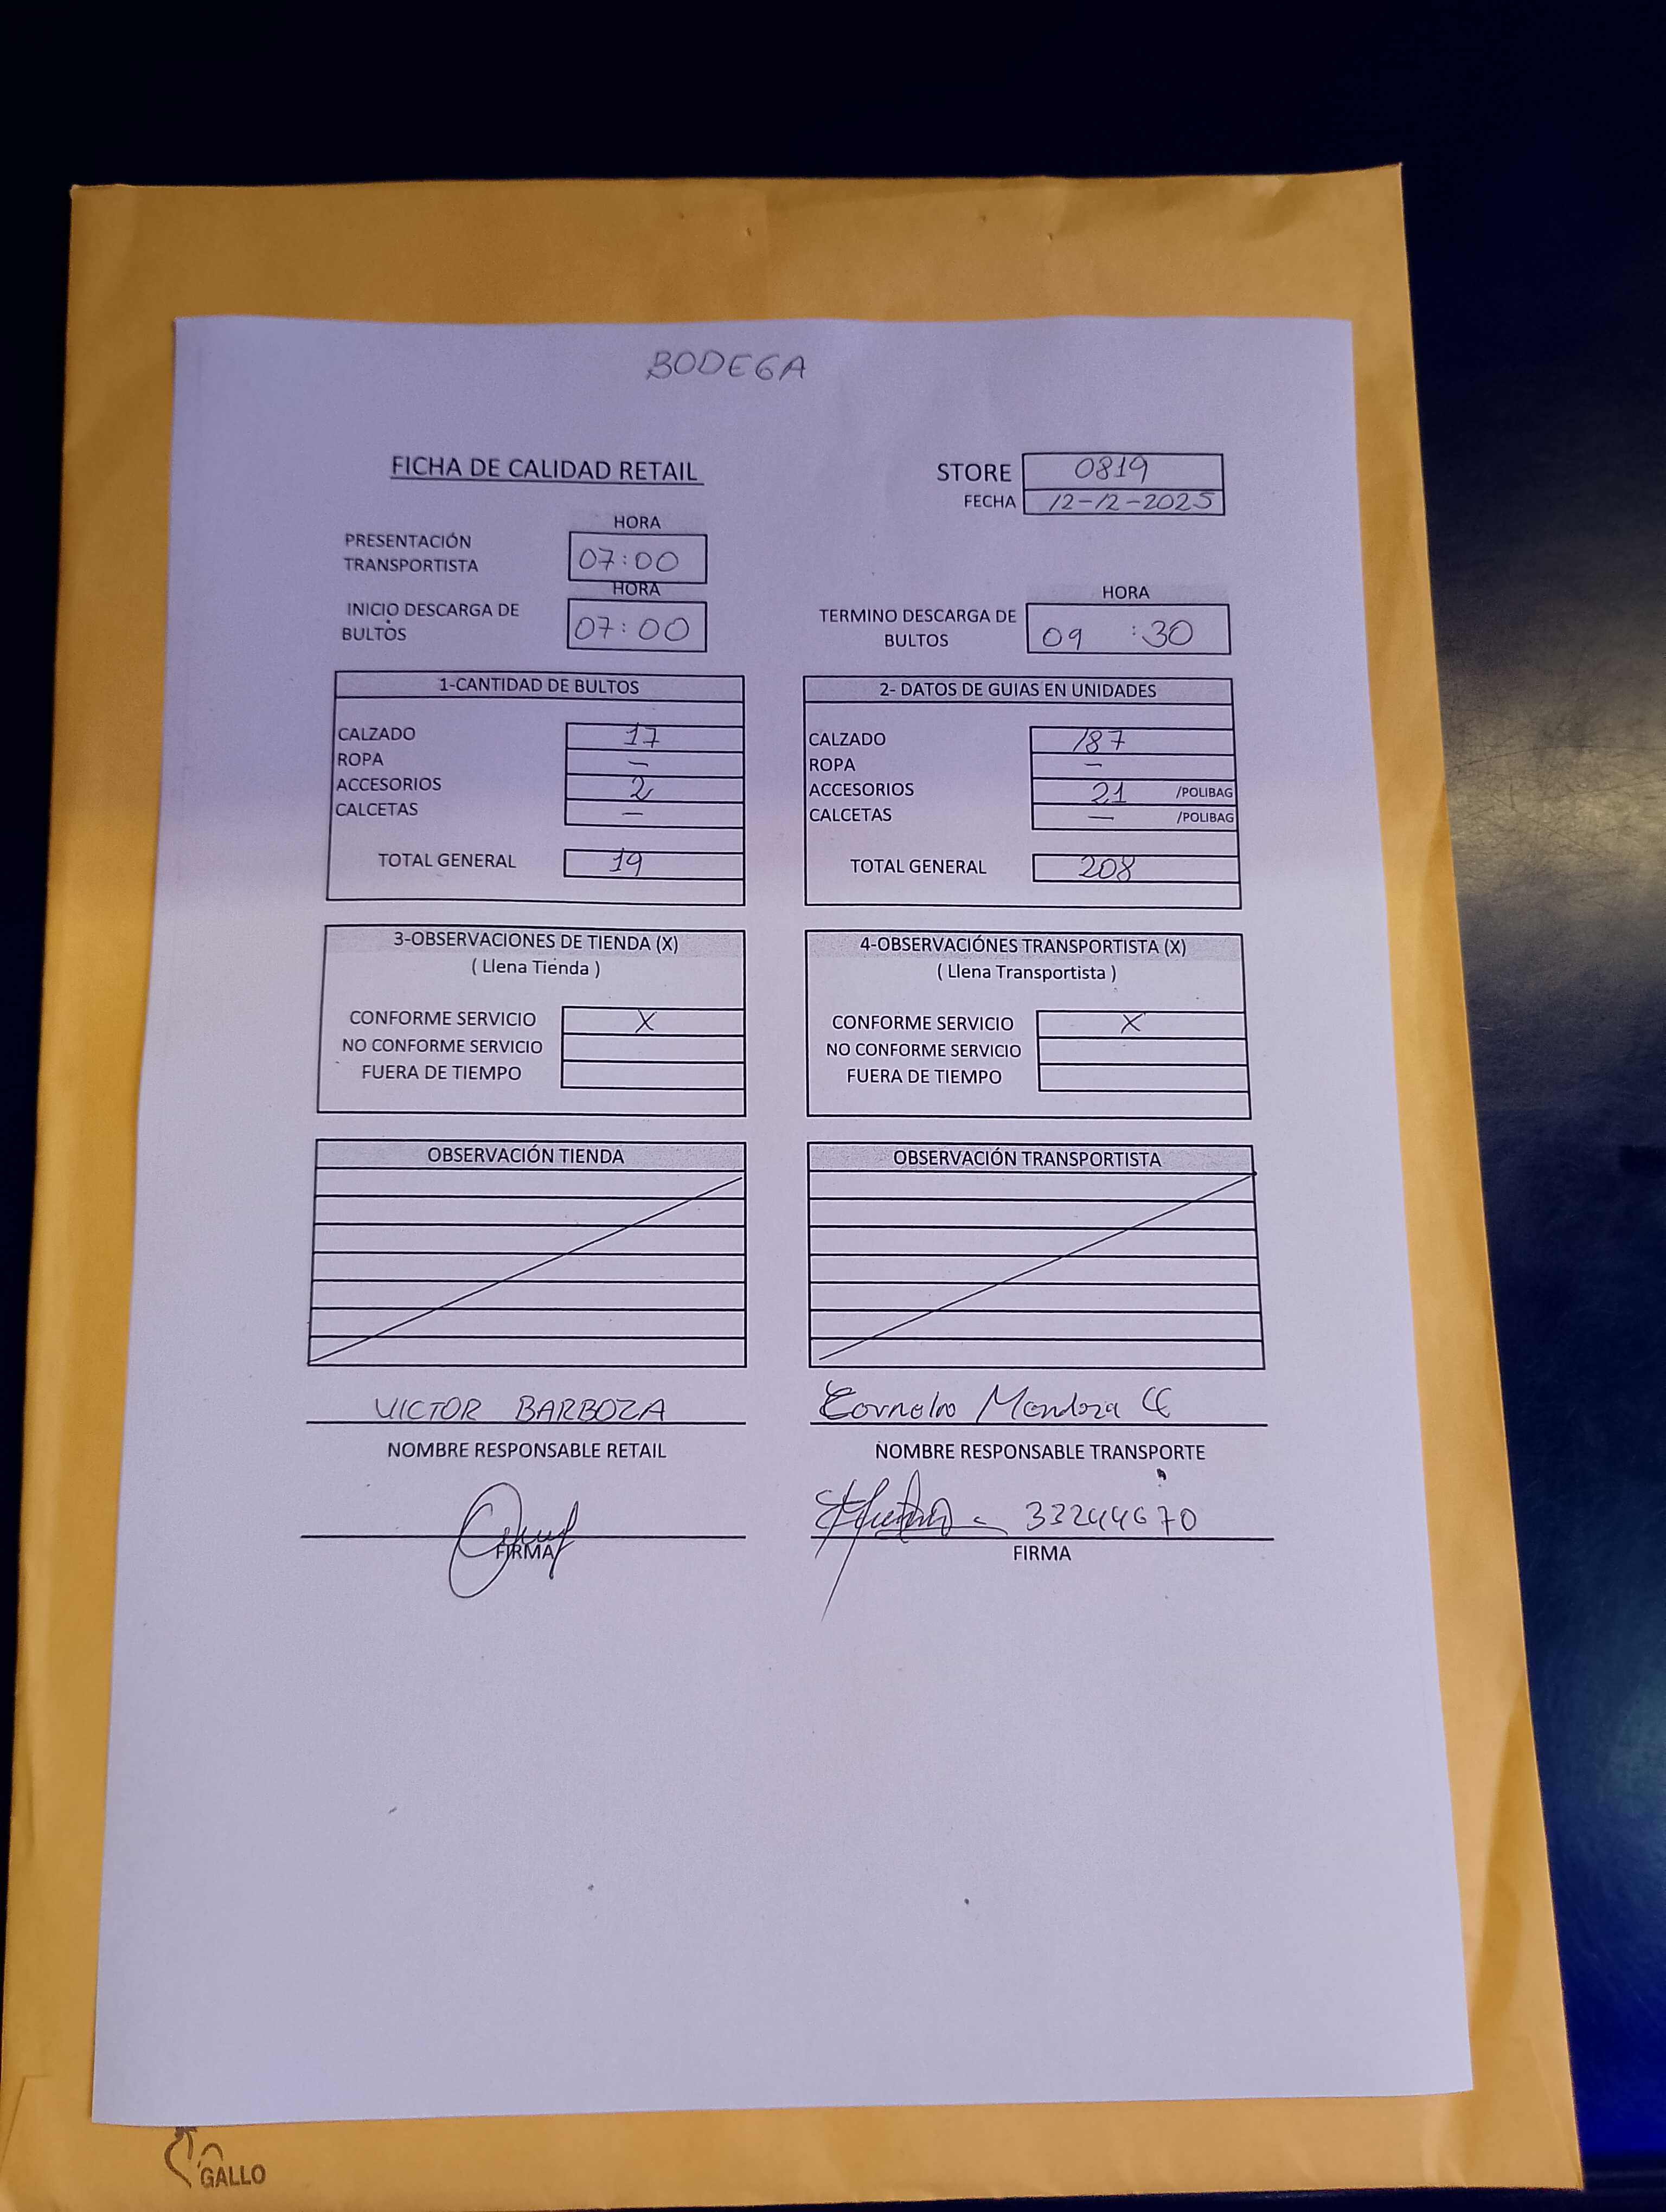 BODEGA
FICHA DE CALIDAD RETAIL
STORE 0819
FECHA 12-12-2025
HORA
PRESENTACIÓN TRANSPORTISTA 07:00
HORA
INICIO DESCARGA DE BULTOS 07:00
HORA
TERMINO DESCARGA DE BULTOS 09 :30
1-CANTIDAD DE BULTOS
CALZADO 17
ROPA —
ACCESORIOS 2
CALCETAS —
TOTAL GENERAL 19
2- DATOS DE GUIAS EN UNIDADES
CALZADO 187
ROPA —
ACCESORIOS 21 /POLIBAG
CALCETAS — /POLIBAG
TOTAL GENERAL 208
3-OBSERVACIONES DE TIENDA (X)
( Llena Tienda )
CONFORME SERVICIO X
NO CONFORME SERVICIO
FUERA DE TIEMPO
4-OBSERVACIÓNES TRANSPORTISTA (X)
( Llena Transportista )
CONFORME SERVICIO X
NO CONFORME SERVICIO
FUERA DE TIEMPO
OBSERVACIÓN TIENDA
OBSERVACIÓN TRANSPORTISTA
VICTOR BARBOZA
NOMBRE RESPONSABLE RETAIL
FIRMA
Mendoza
NOMBRE RESPONSABLE TRANSPORTE
33244670
FIRMA
GALLO